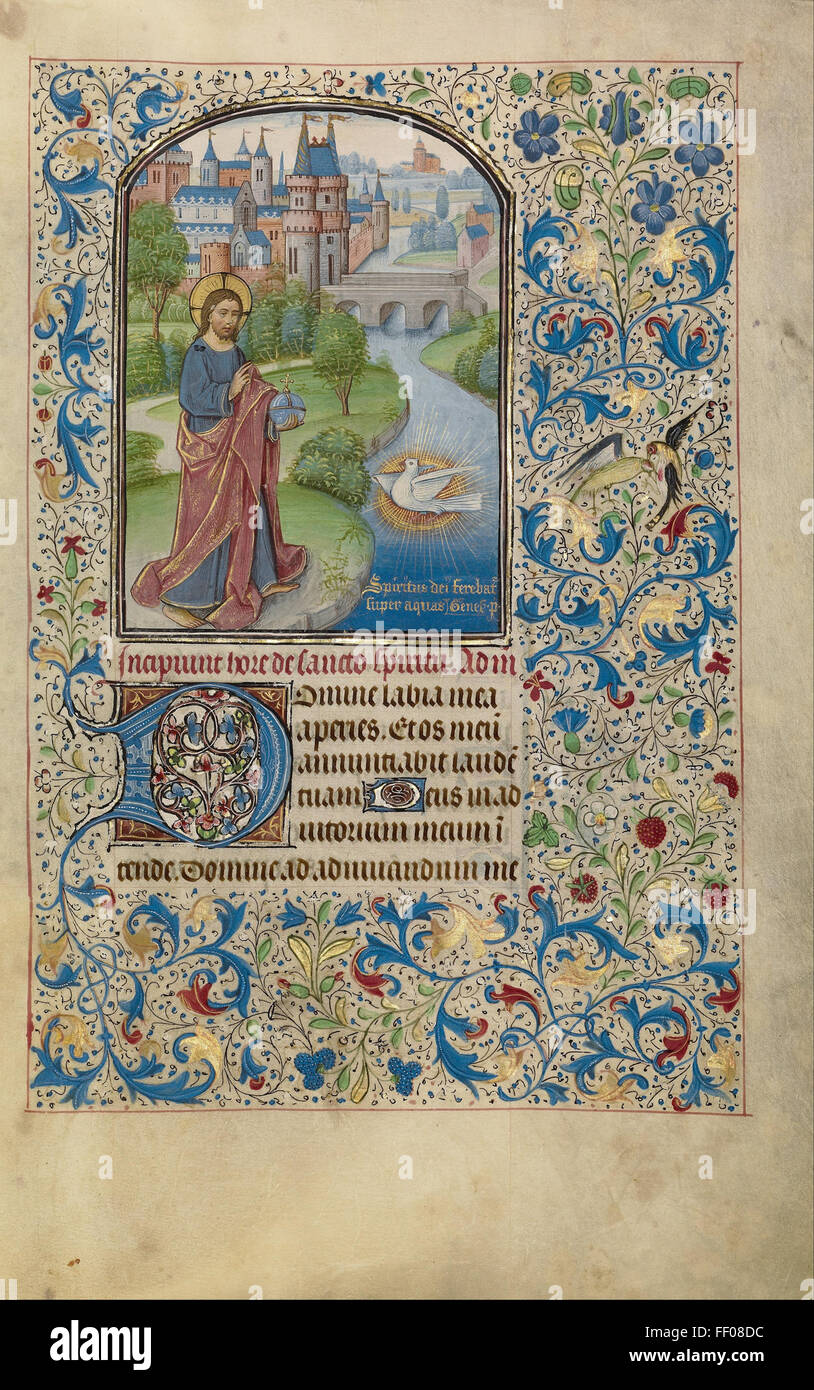 Spiritus dei ferebat᷑
super aquas Genes͛ p̊
Incipiunt hore de sancto spiritu. Ad m̄
Domine labia mea
aperies. Et os meū
annunciabit laudē
tuam Deus in ad
iutorium meum ī
tende. Domine ad adiuuandum me
a
alamy stock photo
a
a
alamy
Image ID: FF08DC
www.alamy.com